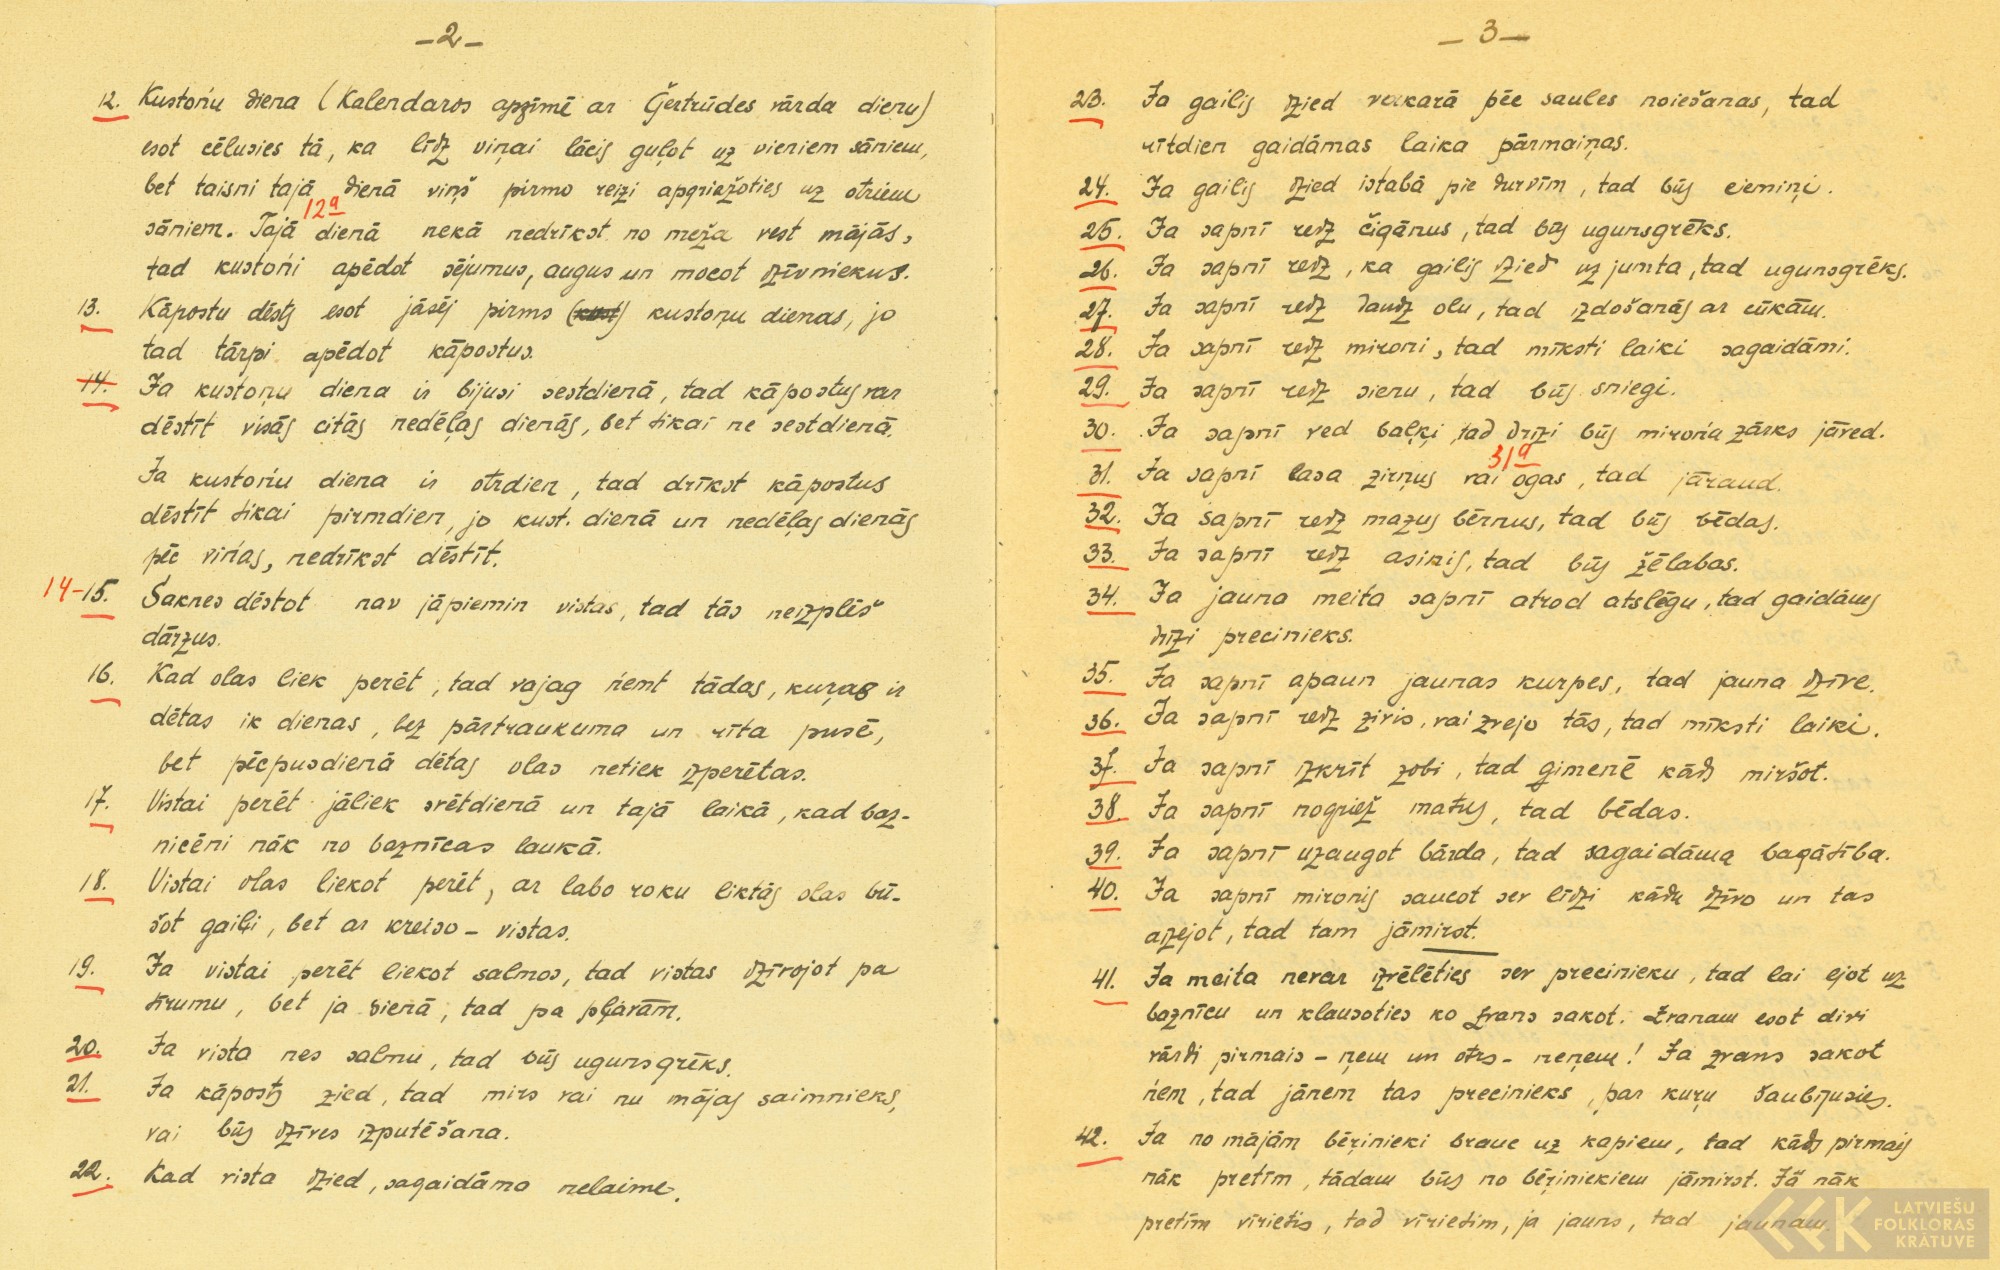 -2-
12. Kustoņu diena (Kalendaros apzīmē ar Ģertrūdes vārda dienu)
esot cēlusies tā, ka līdz viņai lācis guļot uz vieniem sāniem,
bet taisni tajā dienā viņš pirmo reizi apgriežoties uz otriem
12a
sāniem. Tajā dienā nekā nedrīkst no meža vest mājās,
tad kustoņi apēdot sējumus, augus un mocot dzīvniekus.
13. Kāpostu dēsts esot jāsēj pirms (kust) kustoņu dienas, jo
tad tārpi apēdot kāpostus.
14. Ja kustoņu diena ir bijusi sestdienā, tad kāpostus var
dēstīt visās citās nedēļas dienās, bet tikai ne sestdienā.
Ja kustoņu diena ir otrdien, tad drīkst kāpostus
dēstīt tikai pirmdien, jo kust. dienā un nedēļas dienās
pēc viņas, nedrīkst dēstīt.
14-15. Saknes dēstot nav jāpiemin vistas, tad tās neizplēš
dārzus.
16. Kad olas liek perēt, tad vajag ņemt tādas, kuŗas ir
dētas ik dienas, bez pārtraukuma un rīta pusē,
bet pēcpusdienā dētas olas netiek izperētas.
17. Vistai perēt jāliek svētdienā un tajā laikā, kad baz-
nicēni nāk no baznīcas laukā.
18. Vistai olas liekot perēt, ar labo roku liktās olas bū-
šot gaiļi, bet ar kreiso - vistas.
19. Ja vistai perēt liekot salmos, tad vistas dzīvojot pa
tīrumu, bet ja sienā, tad pa pļavām.
20. Ja vista nes salmu, tad būs ugunsgrēks.
21. Ja kāposts zied, tad mirs vai nu mājas saimnieks,
vai būs dzīves izputēšana.
22. Kad vista dzied, sagaidāma nelaime.
-3-
23. Ja gailis dzied vakarā pēc saules noiešanas, tad
rītdien gaidāmas laika pārmaiņas.
24. Ja gailis dzied istabā pie durvīm, tad būs ciemiņi.
25. Ja sapnī redz čigānus, tad būs ugunsgrēks.
26. Ja sapnī redz, ka gailis dzied uz jumta, tad ugunsgrēks.
27. Ja sapnī redz daudz olu, tad izdošanās ar cūkām.
28. Ja sapnī redz mironi, tad mīksti laiki sagaidāmi.
29. Ja sapnī redz sienu, tad būs sniegi.
30. Ja sapnī ved baļķi, tad drīzi būs miroņa zārks jāved.
31a
31. Ja sapnī lasa zirņus vai ogas, tad jāraud.
32. Ja sapnī redz mazus bērnus, tad būs bēdas.
33. Ja sapnī redz asinis, tad būs žēlabas.
34. Ja jauna meita sapnī atrod atslēgu, tad gaidāms
drīzi precinieks.
35. Ja sapnī apaun jaunas kurpes, tad jauna dzīve.
36. Ja sapnī redz zivis, vai zvejo tās, tad mīksti laiki.
37. Ja sapnī izkrīt zobi, tad ģimenē kāds miršot.
38. Ja sapnī nogriež matus, tad bēdas.
39. Ja sapnī uzaugot bārda, tad sagaidāma bagātība.
40. Ja sapnī mironis saucot sev līdzi kādu dzīvo un tas
aizejot, tad tam jāmirst.
41. Ja meita nevar izvēlēties sev precinieku, tad lai ejot uz
baznīcu un klausoties ko zvans sakot. Zvanam esot divi
vārdi pirmais - ņem un otrs - neņem! Ja zvans sakot
ņem, tad jāņem tas precinieks, par kuŗu šaubījusies.
42. Ja no mājām bēŗinieki brauc uz kapiem, tad kāds pirmais
nāk pretīm, tādam būs no bēŗiniekiem jāmirst. Ja nāk
pretīm vīrietis, tad vīrietim, ja jauns, tad jaunam.
LATVIEŠU
FOLKLORAS
KRĀTUVE